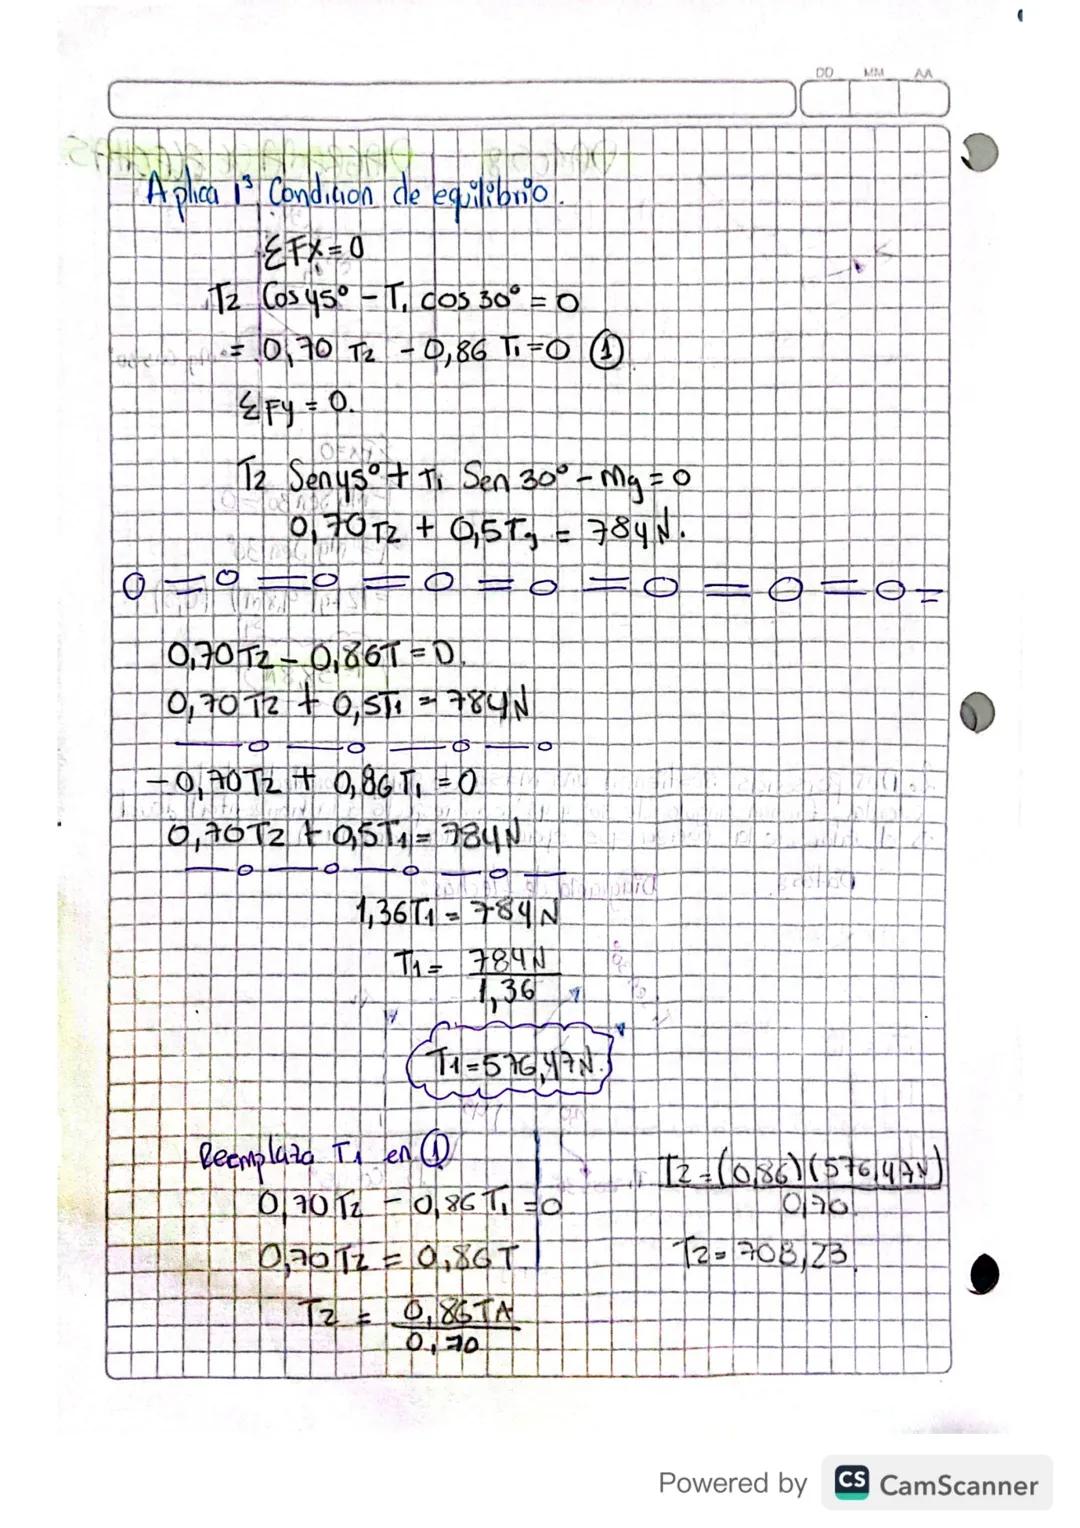 DD MM AA
Aplica 1ª Condicion de equilibrio.
ΣFX=0
T2 Cos 45° - T1 cos 30° = 0
= 0,70 T2 - 0,86 T1 = 0 ①
ΣFy = 0.
T2 Sen 45° + T1 Sen 30° - Mg = 0
0,70 T2 + 0,5 T1 = 784 N.
0,70 T2 - 0,86 T = 0.
0,70 T2 + 0,5 T1 = 784 N
-0,70 T2 + 0,86 T1 = 0
0,70 T2 + 0,5 T1 = 784 N
1,36 T1 = 784 N
T1 = 784 N
1,36
T1 = 576,47 N.
Reemplaza T1 en ①
0,70 T2 - 0,86 T1 = 0
0,70 T2 = 0,86 T
T2 = 0,86 T1
0,70
T2 = (0,86)(576,47N)
0,70.
T2 = 708,23.
Powered by CS CamScanner